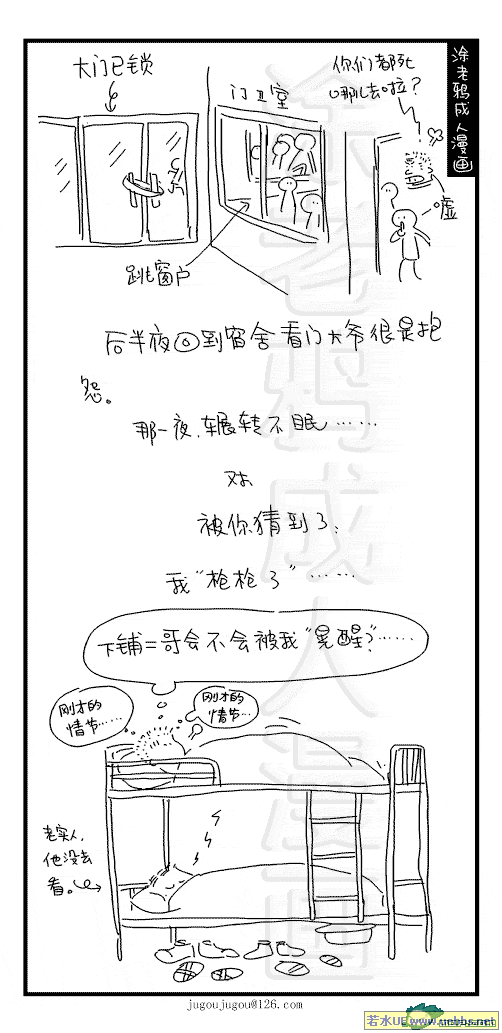 涂老鸦成人漫画
大门已锁
门卫室
你们都死
哪儿去啦?
嘘
跳窗户
后半夜回到宿舍看门大爷很是抱
怨。
那一夜,辗转不眠……
对
被你猜到了,
我“枪枪了”……
下铺二哥会不会被我“晃醒?”……
刚才的
情节……
刚才的
情节…
老实人,
他没去
看。
涂老鸦成人漫画
jugoujugou@126.com
若水UE www.uebbs.net